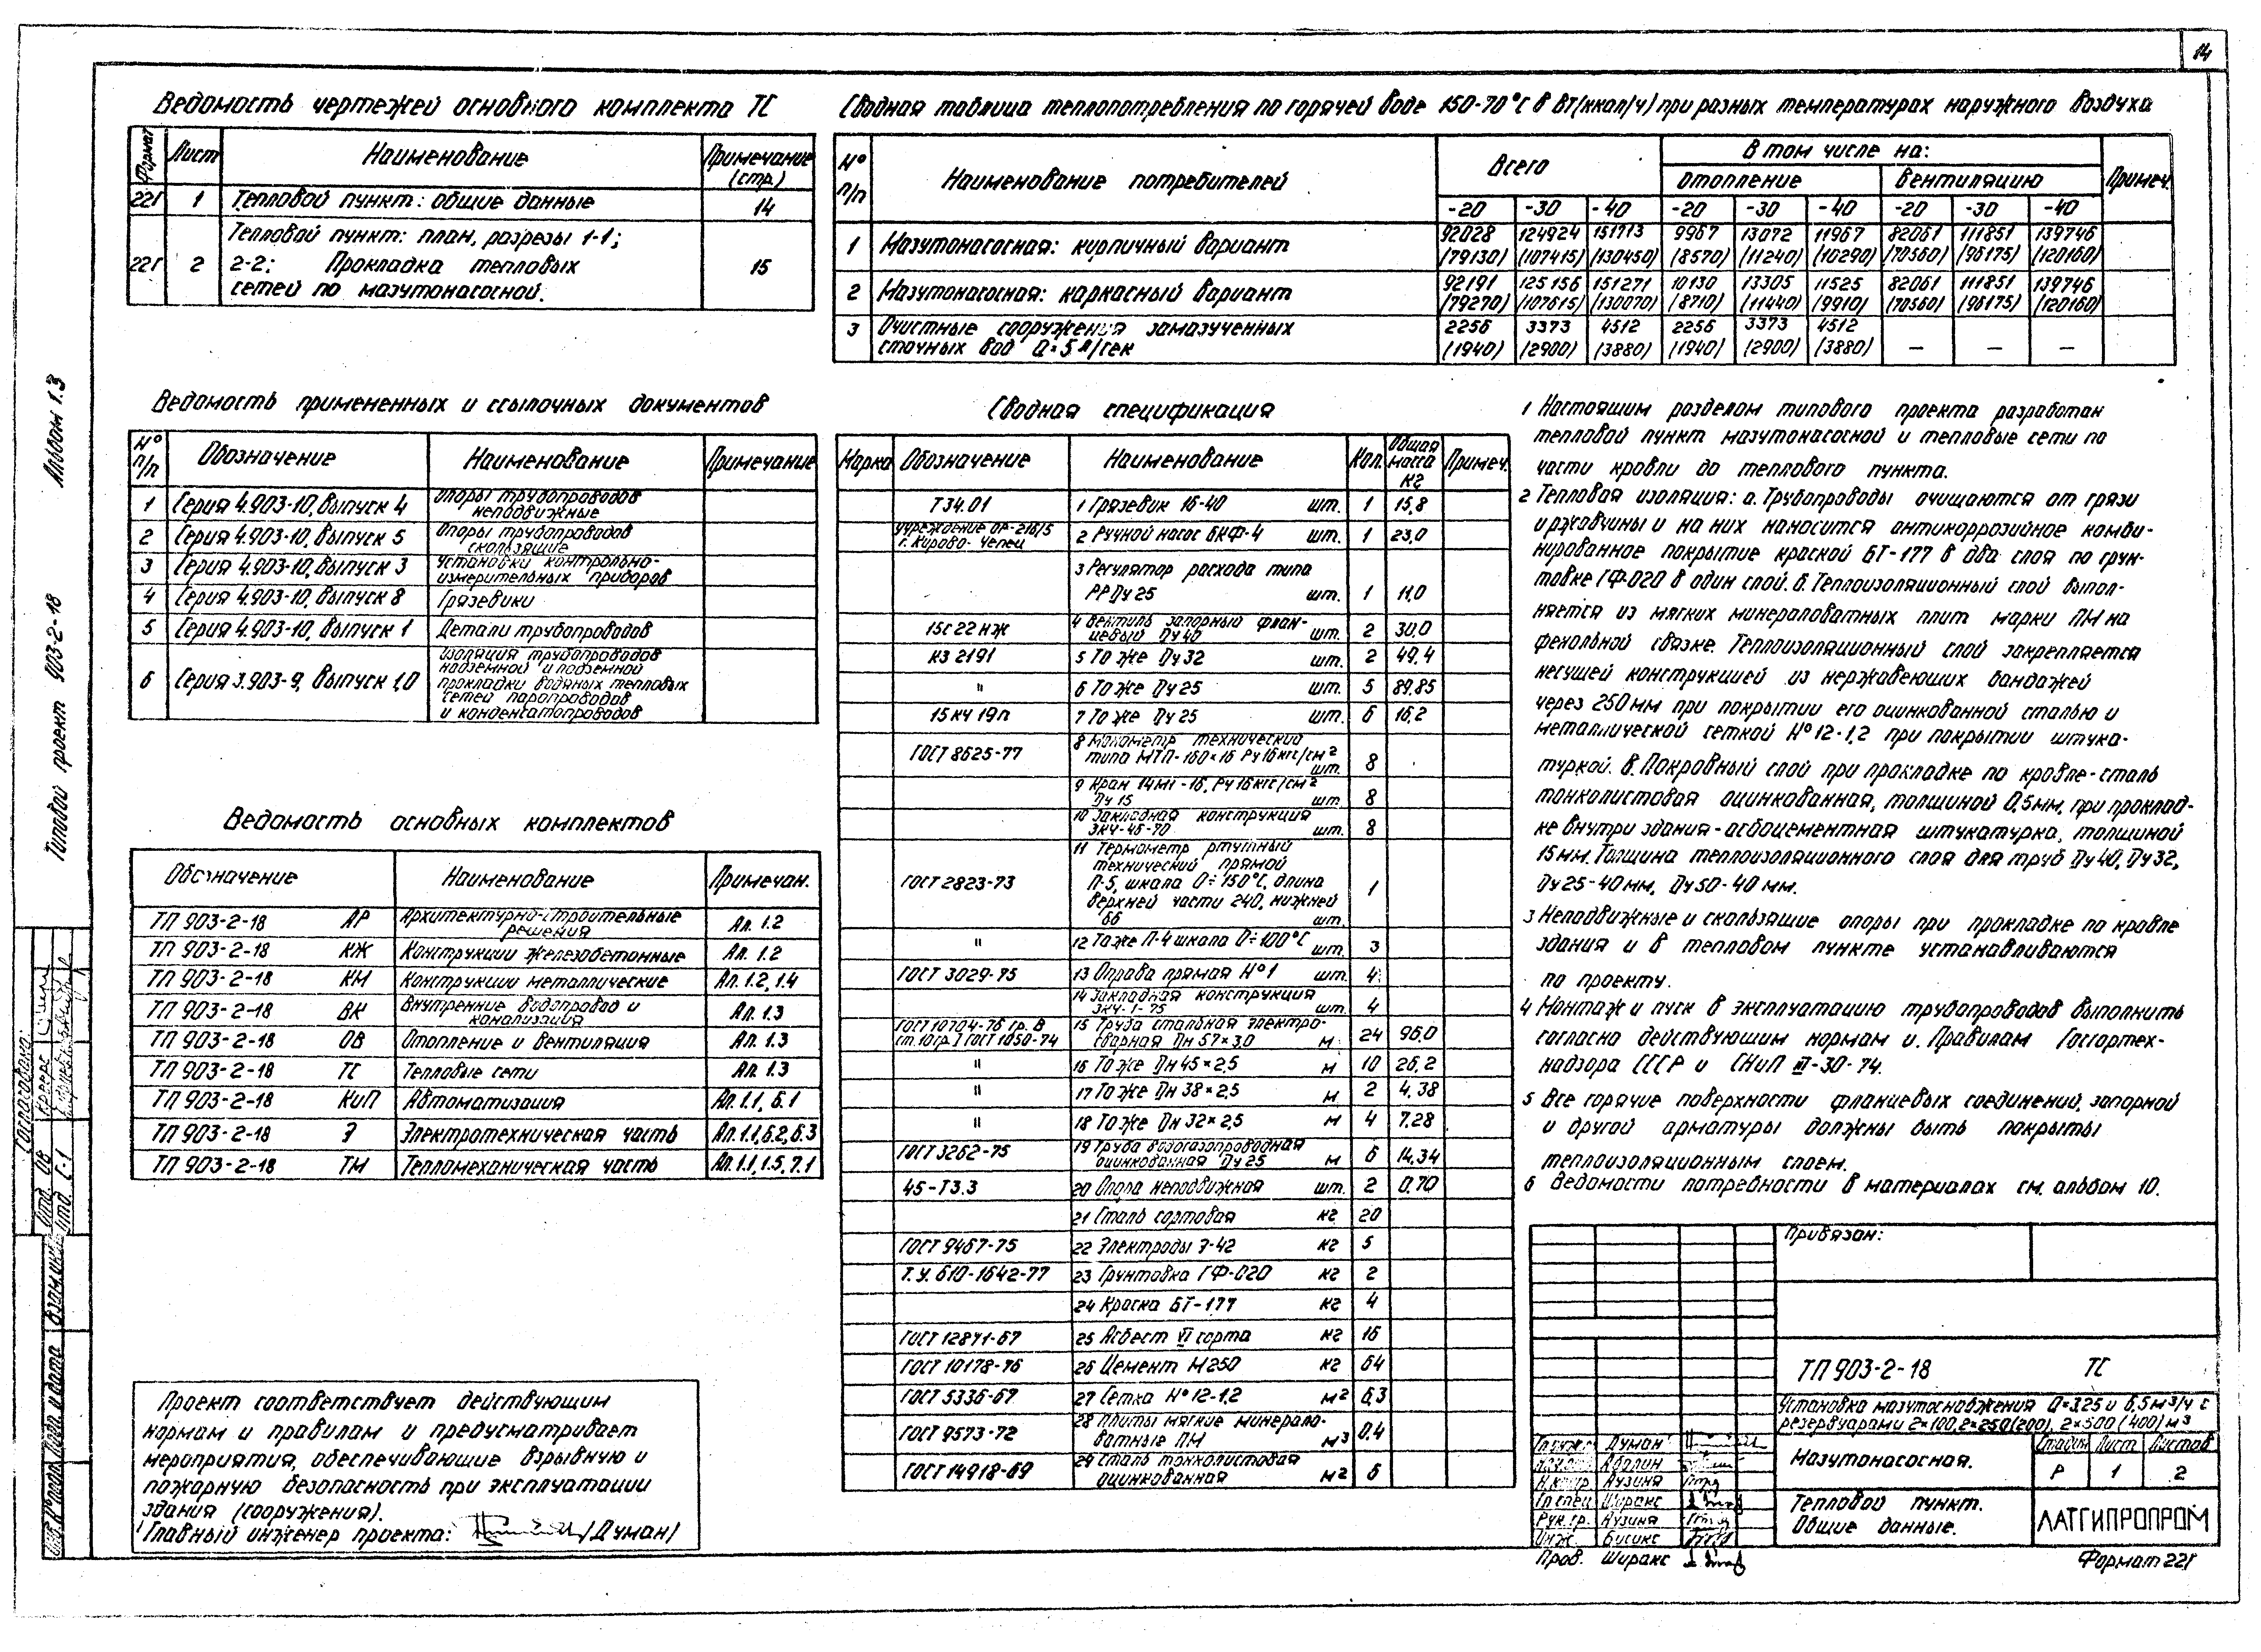 14
Ведомость чертежей основного комплекта ТС
Формат Лист Наименование Примечание (стр.)
22Г 1 Тепловой пункт: общие данные 14
Тепловой пункт: план, разрезы 1-1;
22Г 2 2-2; Прокладка тепловых 15
сетей по мазутонасосной.
Сводная таблица теплопотребления по горячей воде 150-70°С в Вт(ккал/ч) при разных температурах наружного воздуха
N° п/п Наименование потребителей Всего В том числе на: Примеч.
Отопление Вентиляцию
-20 -30 -40 -20 -30 -40 -20 -30 -40
1 Мазутонасосная: кирпичный вариант 92028 124924 151713 9967 13072 11967 82061 111851 139746
(79130) (107415) (130450) (8570) (11240) (10290) (70560) (96175) (120160)
2 Мазутонасосная: каркасный вариант 92191 125156 151271 10130 13305 11525 82061 111851 139746
(79270) (107615) (130070) (8710) (11440) (9910) (70560) (96175) (120160)
3 Очистные сооружения замазученных 2256 3373 4512 2256 3373 4512
сточных вод Q=5 л/сек (1940) (2900) (3880) (1940) (2900) (3880) — — —
Ведомость примененных и ссылочных документов
N° п/п Обозначение Наименование Примечание
1 Серия 4.903-10, Выпуск 4 Опоры трубопроводов
неподвижные
2 Серия 4.903-10, Выпуск 5 Опоры трубопроводов
скользящие
3 Серия 4.903-10, Выпуск 3 Установки контрольно-
измерительных приборов
4 Серия 4.903-10, Выпуск 8 Грязевики
5 Серия 4.903-10, Выпуск 1 Детали трубопроводов
Изоляция трубопроводов
надземной и подземной
6 Серия 3.903-9, Выпуск 1,0 прокладки водяных тепловых
сетей паропроводов
и конденсатопроводов
Ведомость основных комплектов
Обозначение Наименование Примечан.
ТП 903-2-18 АР Архитектурно-строительные
решения Ал. 1.2
ТП 903-2-18 КЖ Конструкции железобетонные Ал. 1.2
ТП 903-2-18 КМ Конструкции металлические Ал. 1.2, 1.4
ТП 903-2-18 ВК Внутренние водопровод и
канализация Ал. 1.3
ТП 903-2-18 ОВ Отопление и вентиляция Ал. 1.3
ТП 903-2-18 ТС Тепловые сети Ал. 1.3
ТП 903-2-18 КиП Автоматизация Ал. 1.1, 6.1
ТП 903-2-18 Э Электротехническая часть Ал. 1.1, 6.2, 6.3
ТП 903-2-18 ТМ Тепломеханическая часть Ал. 1.1, 1.5, 7.1
Проект соответствует действующим
нормам и правилам и предусматривает
мероприятия, обеспечивающие взрывную и
пожарную безопасность при эксплуатации
здания (сооружения).
Главный инженер проекта: /Думан/
Сводная спецификация
Марка Обозначение Наименование Кол. Общая масса кг Примеч.
Т34.01 1 Грязевик 16-40 шт. 1 15,8
Учреждение ОР-216/5
г. Кирово-Чепец 2 Ручной насос БКФ-4 шт. 1 23,0
3 Регулятор расхода типа
РР Ду 25 шт. 1 11,0
15с 22 нж 4 Вентиль запорный флан-
цевый Ду 40 шт. 2 30,0
КЗ 2191 5 То же Ду 32 шт. 2 49.4
" 6 То же Ду 25 шт. 5 89,85
15 кч 19п 7 То же Ду 25 шт. 6 16,2
ГОСТ 8625-77 8 Манометр технический
типа МТП-160×16 Ру 16 кгс/см²
шт. 8
9 Кран 14М1-16, Ру 16 кгс/см²
Ду 15 шт. 8
10 Закладная конструкция
ЗКЧ-45-70 шт. 8
11 Термометр ртутный
технический прямой
ГОСТ 2823-73 П-5, шкала 0÷150°С, длина
верхней части 240, нижней
66 шт. 1
" 12 То же П-4 шкала 0÷100°С шт. 3
ГОСТ 3029-75 13 Оправа прямая N°1 шт. 4
14 Закладная конструкция
ЗКЧ-1-75 шт. 4
ГОСТ 10704-76 гр. В 15 Труба стальная электро-
ст. 10 гр. ГОСТ 1050-74 сварная Дн 57×3,0 м 24 96,0
" 16 То же Дн 45×2,5 м 10 26,2
" 17 То же Дн 38×2,5 м 2 4,38
" 18 То же Дн 32×2,5 м 4 7.28
ГОСТ 3262-75 19 Труба водогазопроводная
оцинкованная Ду 25 м 6 14,34
45-Т3.3 20 Опора неподвижная шт. 2 0,70
21 Сталь сортовая кг 20
ГОСТ 9467-75 22 Электроды Э-42 кг 5
Т.У. 610-1642-77 23 Грунтовка ГФ-020 кг 2
24 Краска БТ-177 кг 4
ГОСТ 12871-67 25 Асбест VI сорта кг 16
ГОСТ 10178-76 26 Цемент М250 кг 64
ГОСТ 5336-67 27 Сетка N° 12-1,2 м² 6,3
ГОСТ 9573-72 28 Плиты мягкие минерало-
ватные ПМ м³ 0.4
ГОСТ 14918-69 29 Сталь тонколистовая
оцинкованная м² 6
1 Настоящим разделом типового проекта разработан
тепловой пункт мазутонасосной и тепловые сети по
части кровли до теплового пункта.
2 Тепловая изоляция: а. Трубопроводы очищаются от грязи
и ржавчины и на них наносится антикоррозийное комби-
нированное покрытие краской БТ-177 в два слоя по грун-
товке ГФ-020 в один слой. б. Теплоизоляционный слой выпол-
няется из мягких минераловатных плит марки ПМ на
фенольной связке. Теплоизоляционный слой закрепляется
несущей конструкцией из нержавеющих бандажей
через 250мм при покрытии его оцинкованной сталью и
металлической сеткой N° 12-1,2 при покрытии штука-
туркой. в. Покровный слой при прокладке по кровле-сталь
тонколистовая оцинкованная, толщиной 0,5мм, при проклад-
ке внутри здания-асбоцементная штукатурка, толщиной
15мм. Толщина теплоизоляционного слоя для труб Ду 40, Ду 32,
Ду 25-40мм, Ду 50-40мм.
3 Неподвижные и скользящие опоры при прокладке по кровле
здания и в тепловом пункте устанавливаются
по проекту.
4 Монтаж и пуск в эксплуатацию трубопроводов выполнить
согласно действующим нормам и Правилам Госгортех-
надзора СССР и СНиП III-30-74.
5 Все горячие поверхности фланцевых соединений, запорной
и другой арматуры должны быть покрыты
теплоизоляционным слоем.
6 Ведомости потребности в материалах см. альбом 10.
Привязан:
ТП 903-2-18 ТС
Установка мазутоснабжения Q=3,25 и 6,5 м³/ч с
резервуарами 2×100, 2×250(200), 2×500(400) м³
Мазутонасосная. Стадия Лист Листов
Р 1 2
Тепловой пункт.
Общие данные.
ЛАТГИПРОПРОМ
Думан
Аболин
Н.контр. Аузиня
Гл.спец. Ширакс
Рук.гр. Аузиня
Инж. Бисикс
Пров. Ширакс
Формат 22г
Альбом 1.3
Типовой проект 903-2-18
Согласовано:
Отд. ОВ Кргерс
Отд. С-1
Инв. N° подл. Подп. и дата Взам. инв.